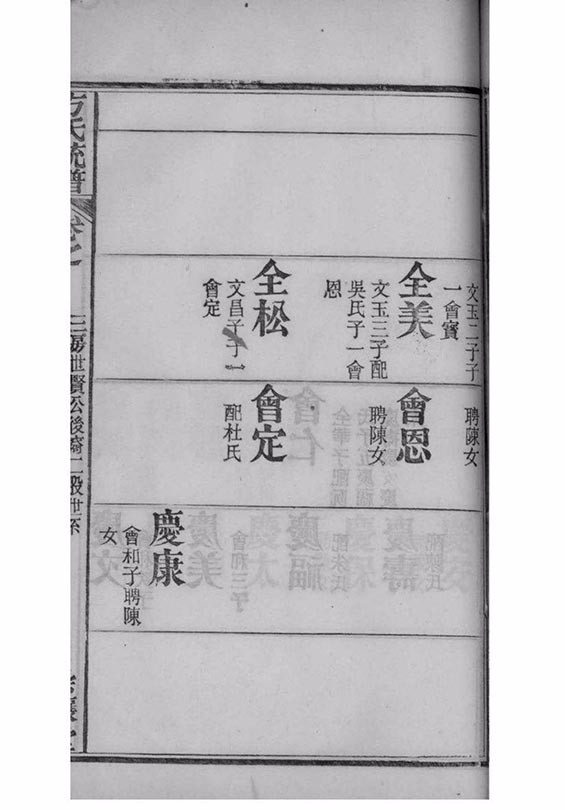 文玉二子子
一會寶
全美
文玉三子配
吳氏子一會
恩
全松
文昌子子一
會定
聘陳女
會恩
聘陳女
會定
配杜氏
慶康
會和子聘陳
女
方氏統譜
卷之
三房世賢公後裔二股世系